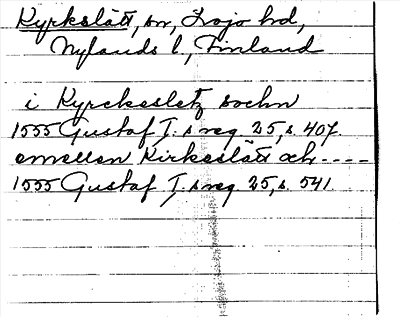 Kyrkslätt, sn, Lojo hd,
Nylands l, Finland
i Kyrckesletz sochn
1555 Gustaf I:s reg. 25, s. 407.
emellan Kirkeslätt och ----
1555 Gustaf I:s reg. 25, s. 541